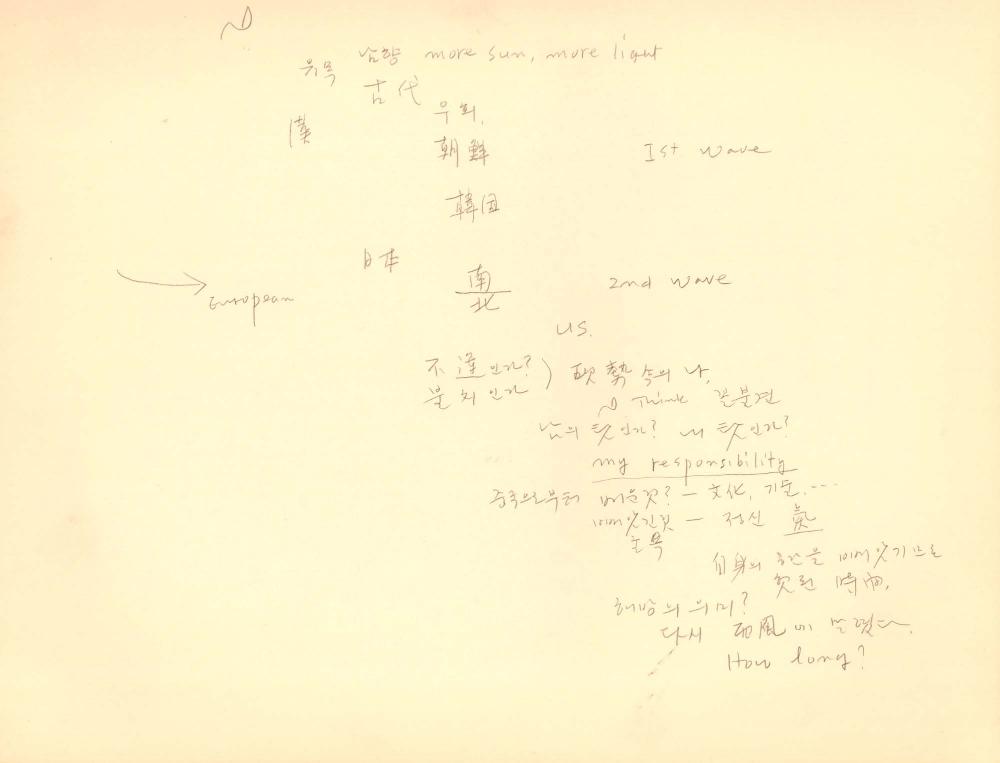 유목 남향 more sun, more light
古代
우리,
漢
朝鮮 1st wave
韓国
日本
南 2nd wave
北
European
US.
不運인가?
불치인가 勢 속의 나,
Think 꼴불견
남의 탓인가? 내 탓인가?
my responsibility
중국으로부터 배운것? — 文化, 기술, ...
빼앗긴것 — 정신 氣
굴복
自身의 혼을 빼앗기므로
헛된 時間,
해방의 의미?
다시 西風에 쏠렸다.
How long?